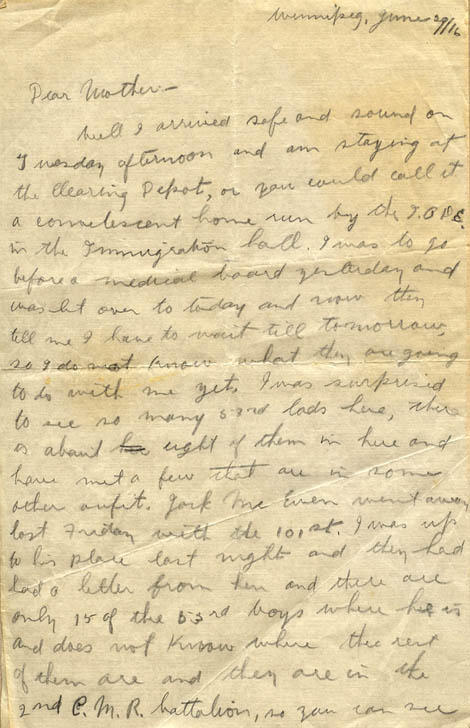 Winnipeg, June 29/16
Dear Mother:-
Well I arrived safe and sound on
Tuesday afternoon and am staying at
the Clearing Depot, or you could call it
a convelescent home run by the I.O.D.E.
in the Immigration hall. I was to go
before a medical board yesterday and
was let over to today and now they
tell me I have to wait till tomorrow,
so I do not know what they are going
to do with me yet. I was surprised
to see so many 53rd lads here, there
is about eight of them in here and
have met a few that are in some
other outfit. Jack Mc Ewen went away
last Friday with the 101st. I was up
to his place last night and they had
had a letter from him and there are
only 15 of the 53rd boys where he is
and does not know where the rest
of them are and they are in the
2nd C. M. R. battalion, so you can see